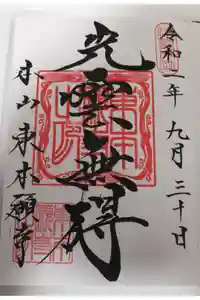 令和二年九月三十日
光雲無碍
本山東本願寺